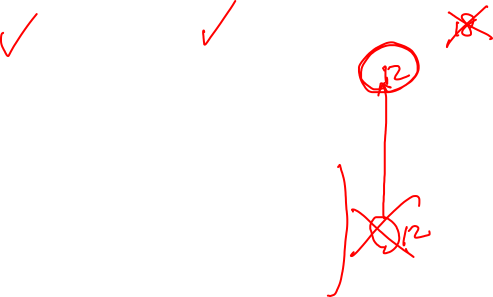 18
12
12